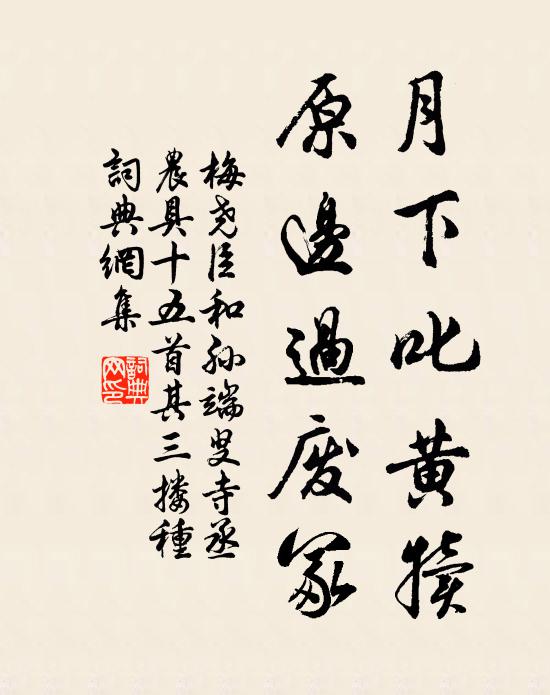 月下叱黄犢
原邊過廢冢
梅尧臣和孙端叟寺丞
農具十五首其三搂種
詞典網集
詞典網印